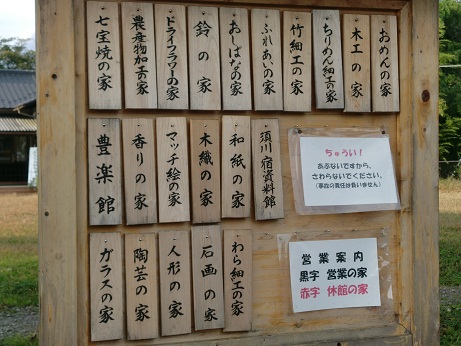 おめんの家
木工の家
ちりめん細工の家
竹細工の家
ふれあいの家
おしばなの家
鈴の家
ドライフラワーの家
農産物加工の家
七宝焼の家
須川宿資料館
和紙の家
木織の家
マッチ絵の家
香りの家
豊楽館
わら細工の家
石画の家
人形の家
陶芸の家
ガラスの家
ちゅうい！
あぶないですから、
さわらないでください。
(事故の責任は負いません)
営業案内
黒字 営業の家
赤字 休館の家